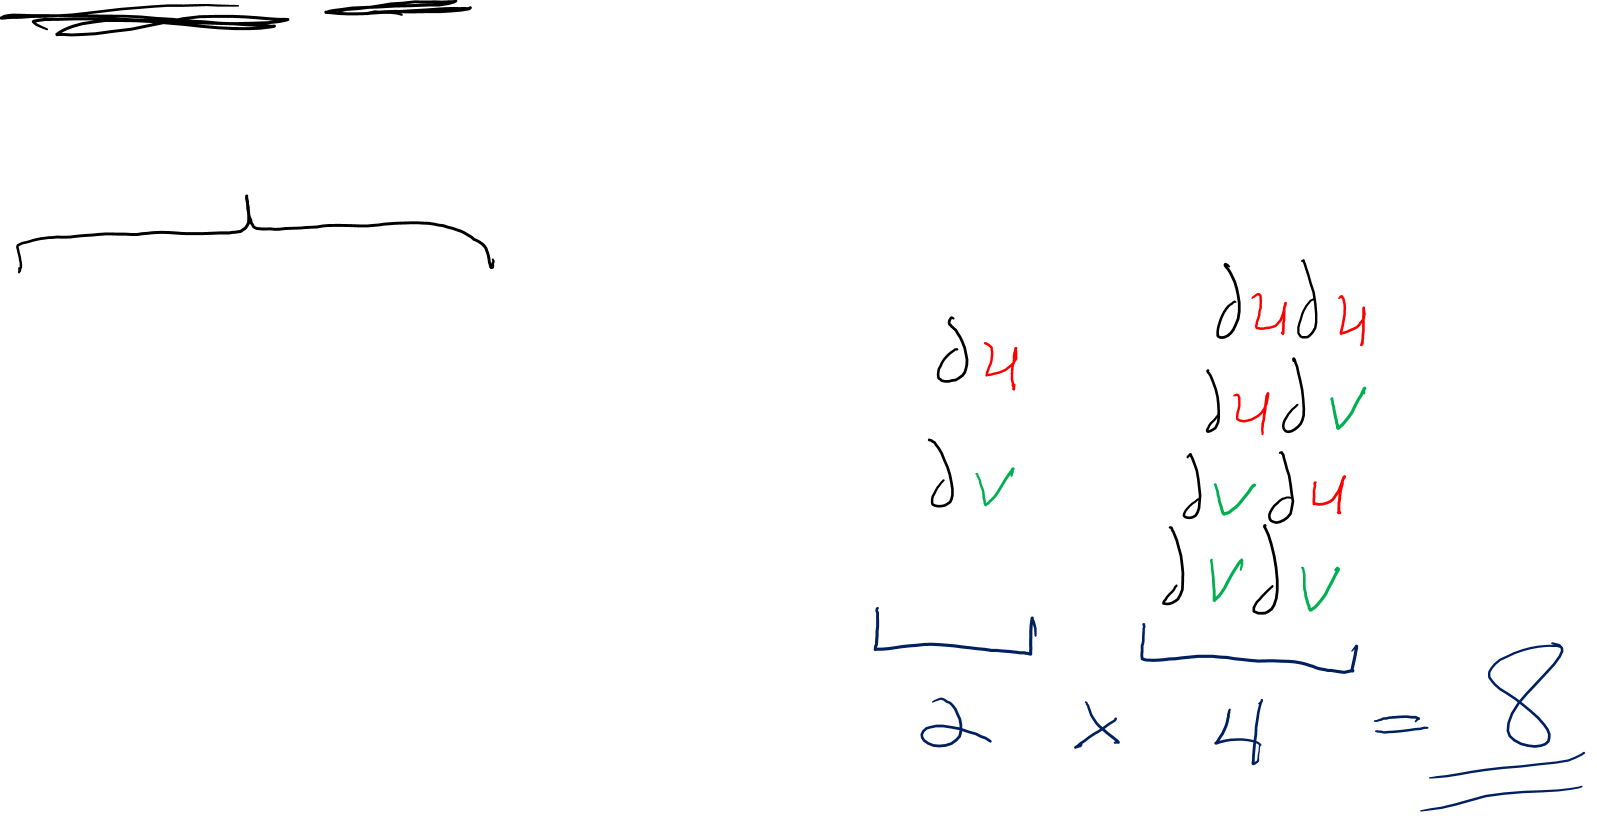 ∂u∂u
∂u
∂u∂v
∂v
∂v∂u
∂v∂v
2 × 4 = 8